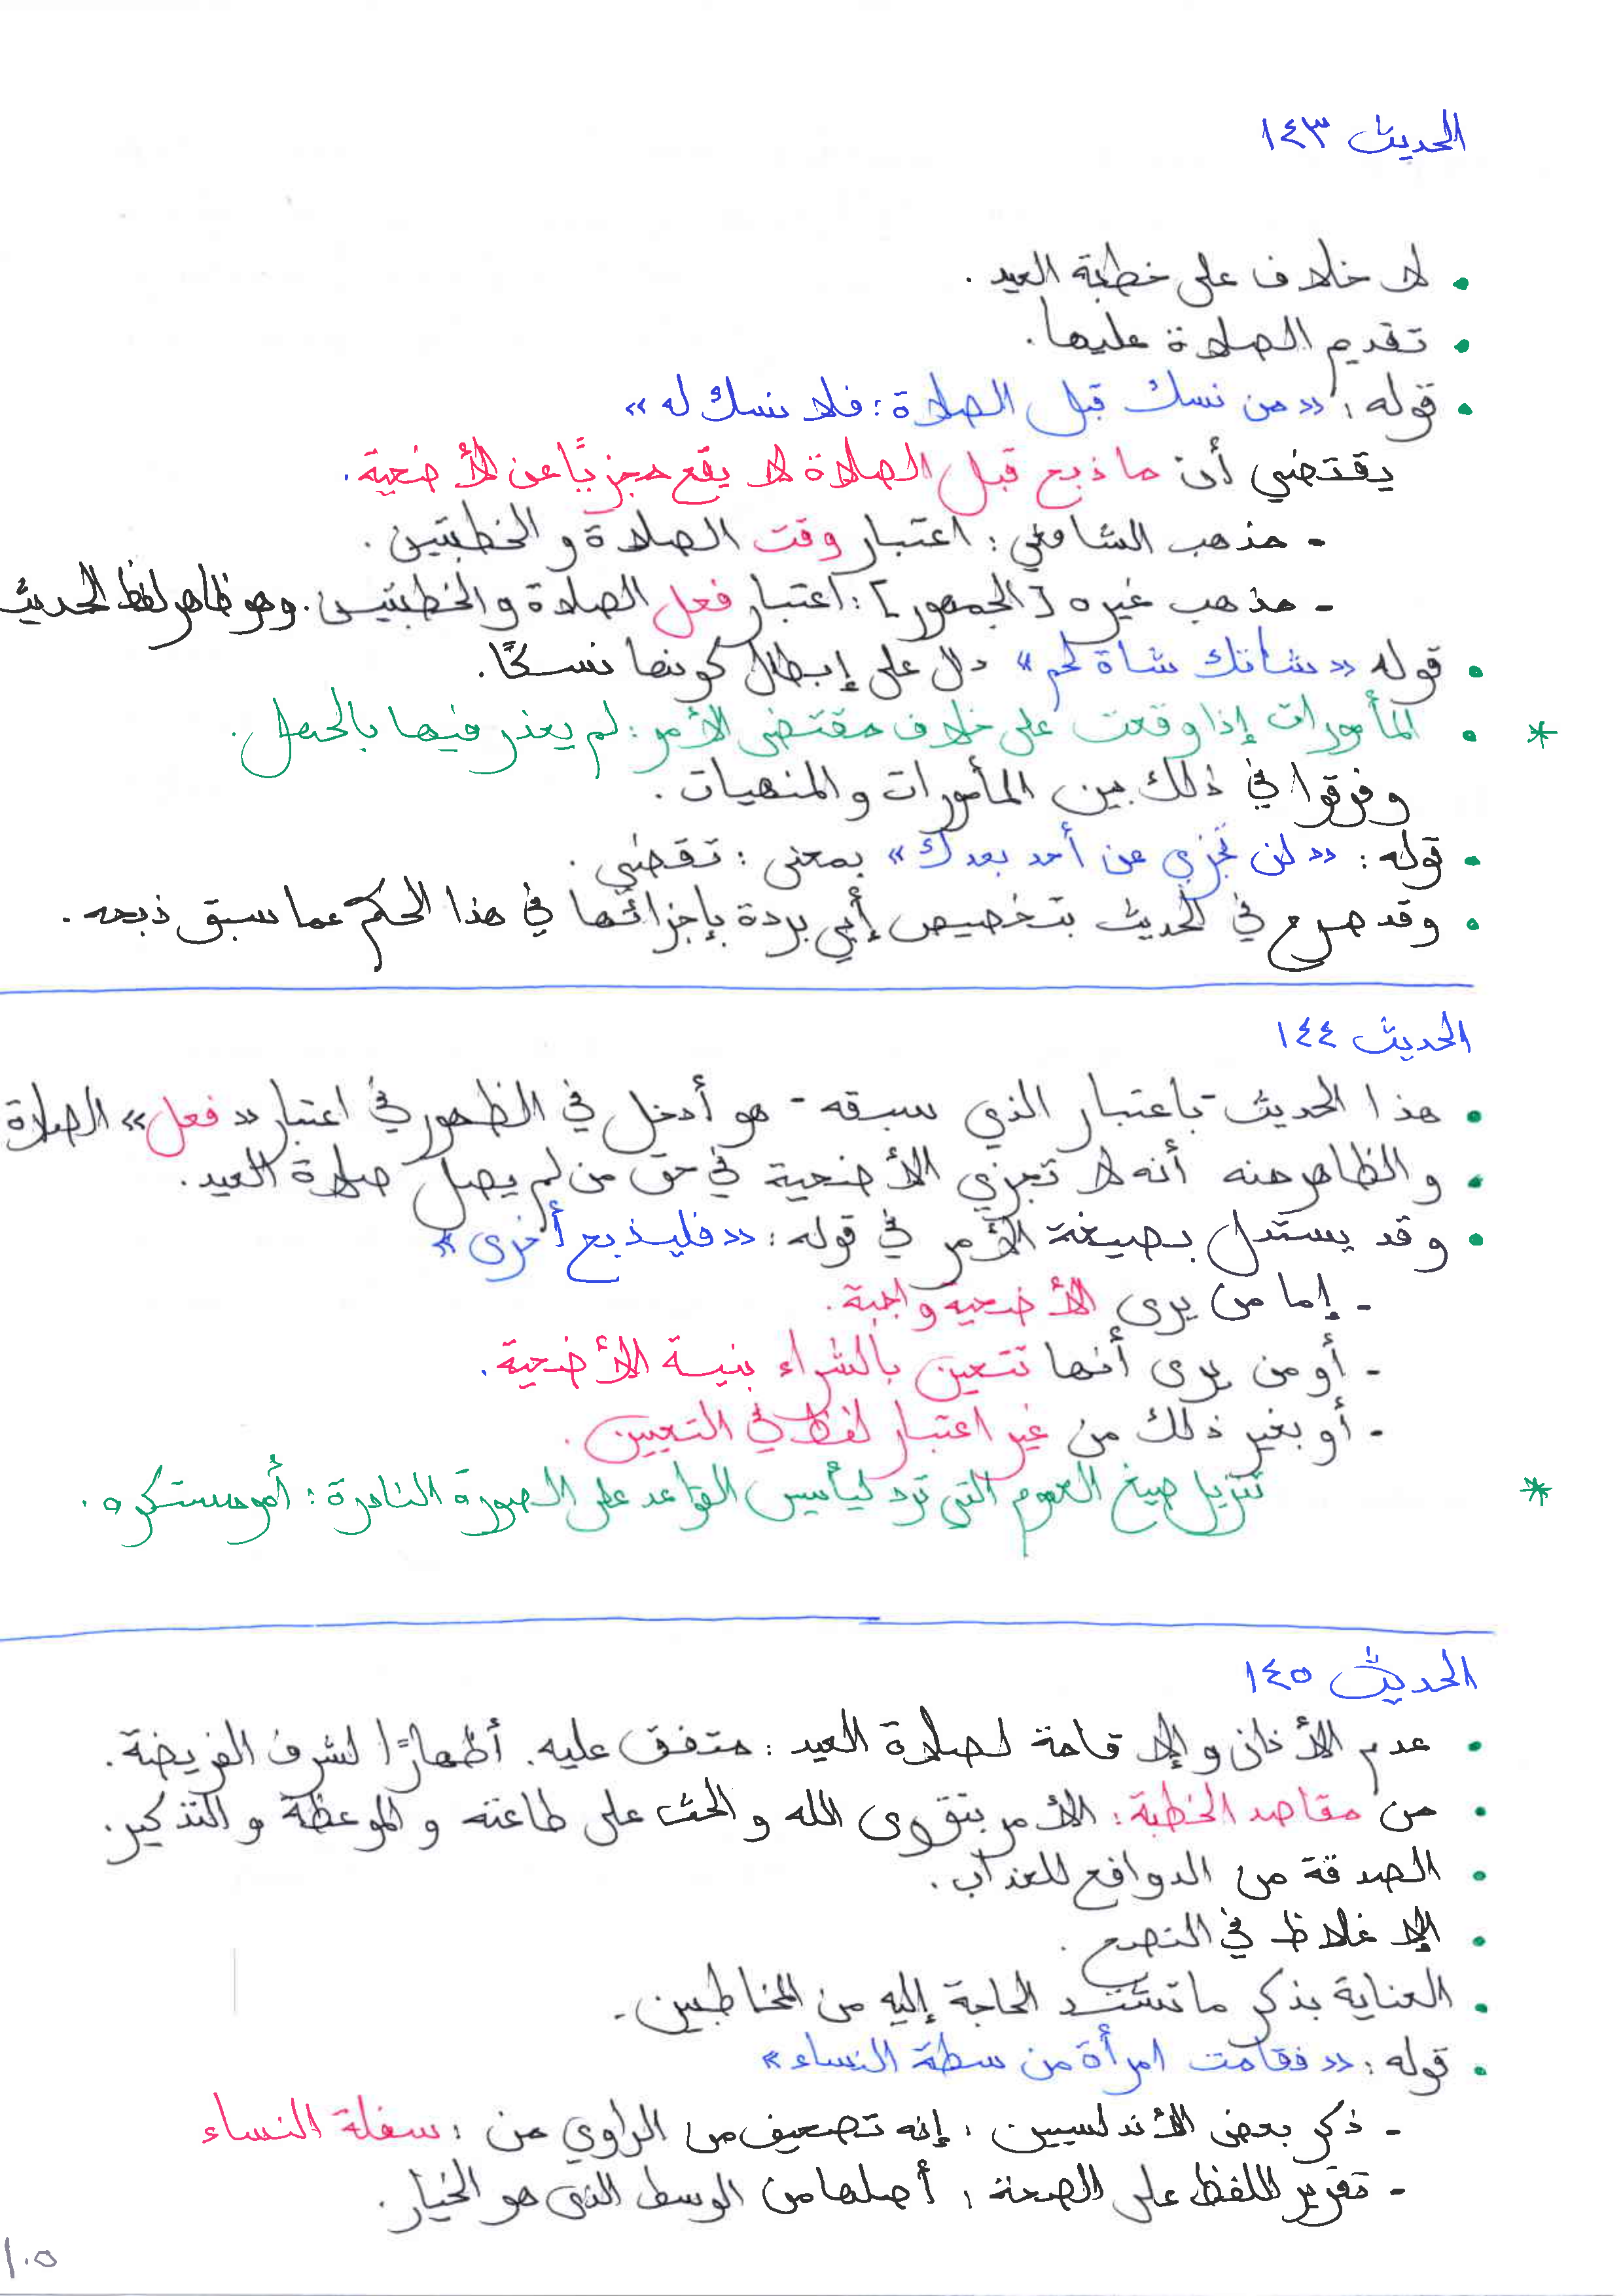 الحديث ١٤٣
• لا خلاف على خطبة العيد .
• تقديم الصلاة عليها .
• قوله : «من نسك قبل الصلاة : فلا نسك له»
يقتضي أن ما ذبح قبل الصلاة لا يقع مجزيًا عن الأضحية .
- مذهب الشافعي : اعتبار وقت الصلاة والخطبتين .
- مذهب غيره [الجمهور] : اعتبار فعل الصلاة والخطبتين . وهو ظاهر لفظ الحديث
• قوله «شاتك شاة لحم» دل على إبطال كونها نسكًا .
* • المأمورات إذا وقعت على خلاف مقتضى الأمر : لم يعذر فيها بالجهل .
وفرقوا في ذلك بين المأمورات والمنهيات .
• قوله : «لن تجزي عن أحد بعدك» بمعنى : تقضي .
• وقد صرح في الحديث بتخصيص أبي بردة بإجزائها في هذا الحكم عما سبق ذبحه .
الحديث ١٤٤
• هذا الحديث - باعتبار الذي سبقه - هو أدخل في الظهور في اعتبار «فعل» الصلاة
• والظاهر منه أنه لا تجزي الأضحية في حق من لم يصل صلاة العيد .
• وقد يستدل بصيغة الأمر في قوله : «فليذبح أخرى»
- إما من يرى الأضحية واجبة .
- أو من يرى أنها تتعين بالشراء بنية الأضحية .
- أو بغير ذلك من غير اعتبار لفظ في التعيين .
* تنزيل صيغ العموم التي ترد لتأسيس القواعد على الصورة النادرة : أمر مستكره .
الحديث ١٤٥
• عدم الأذان والإقامة لصلاة العيد : متفق عليه . أظهارًا لشرف الفريضة .
• من مقاصد الخطبة : الأمر بتقوى الله والحث على طاعته والموعظة والتذكير .
• الصدقة من الدوافع للعذاب .
• الإغلاظ في النصح .
• العناية بذكر ما تشتد الحاجة إليه من المخاطبين .
• قوله : «فقامت امرأة من سطة النساء»
- ذكر بعض الأندلسيين : إنه تصحيف من الراوي من : سفلة النساء
- تقرير اللفظ على الصحة : أصلها من الوسط الذي هو الخيار .
١٠٥